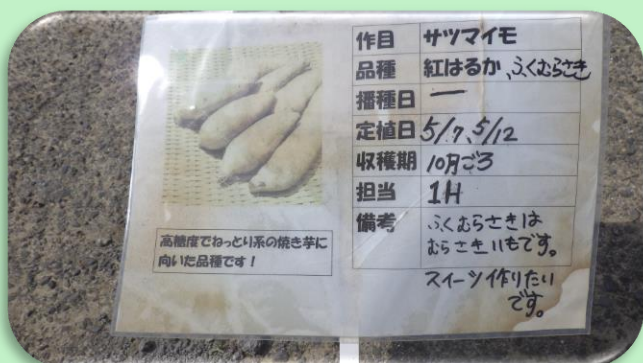 作目 サツマイモ
品種 紅はるか、ふくむらさき
播種日 ー
定植日 5/7、5/12
収穫期 10月ごろ
担当 1H
備考 ふくむらさきは
むらさきいもです。
スイーツ作りたい
です。
高糖度でねっとり系の焼き芋に
向いた品種です！